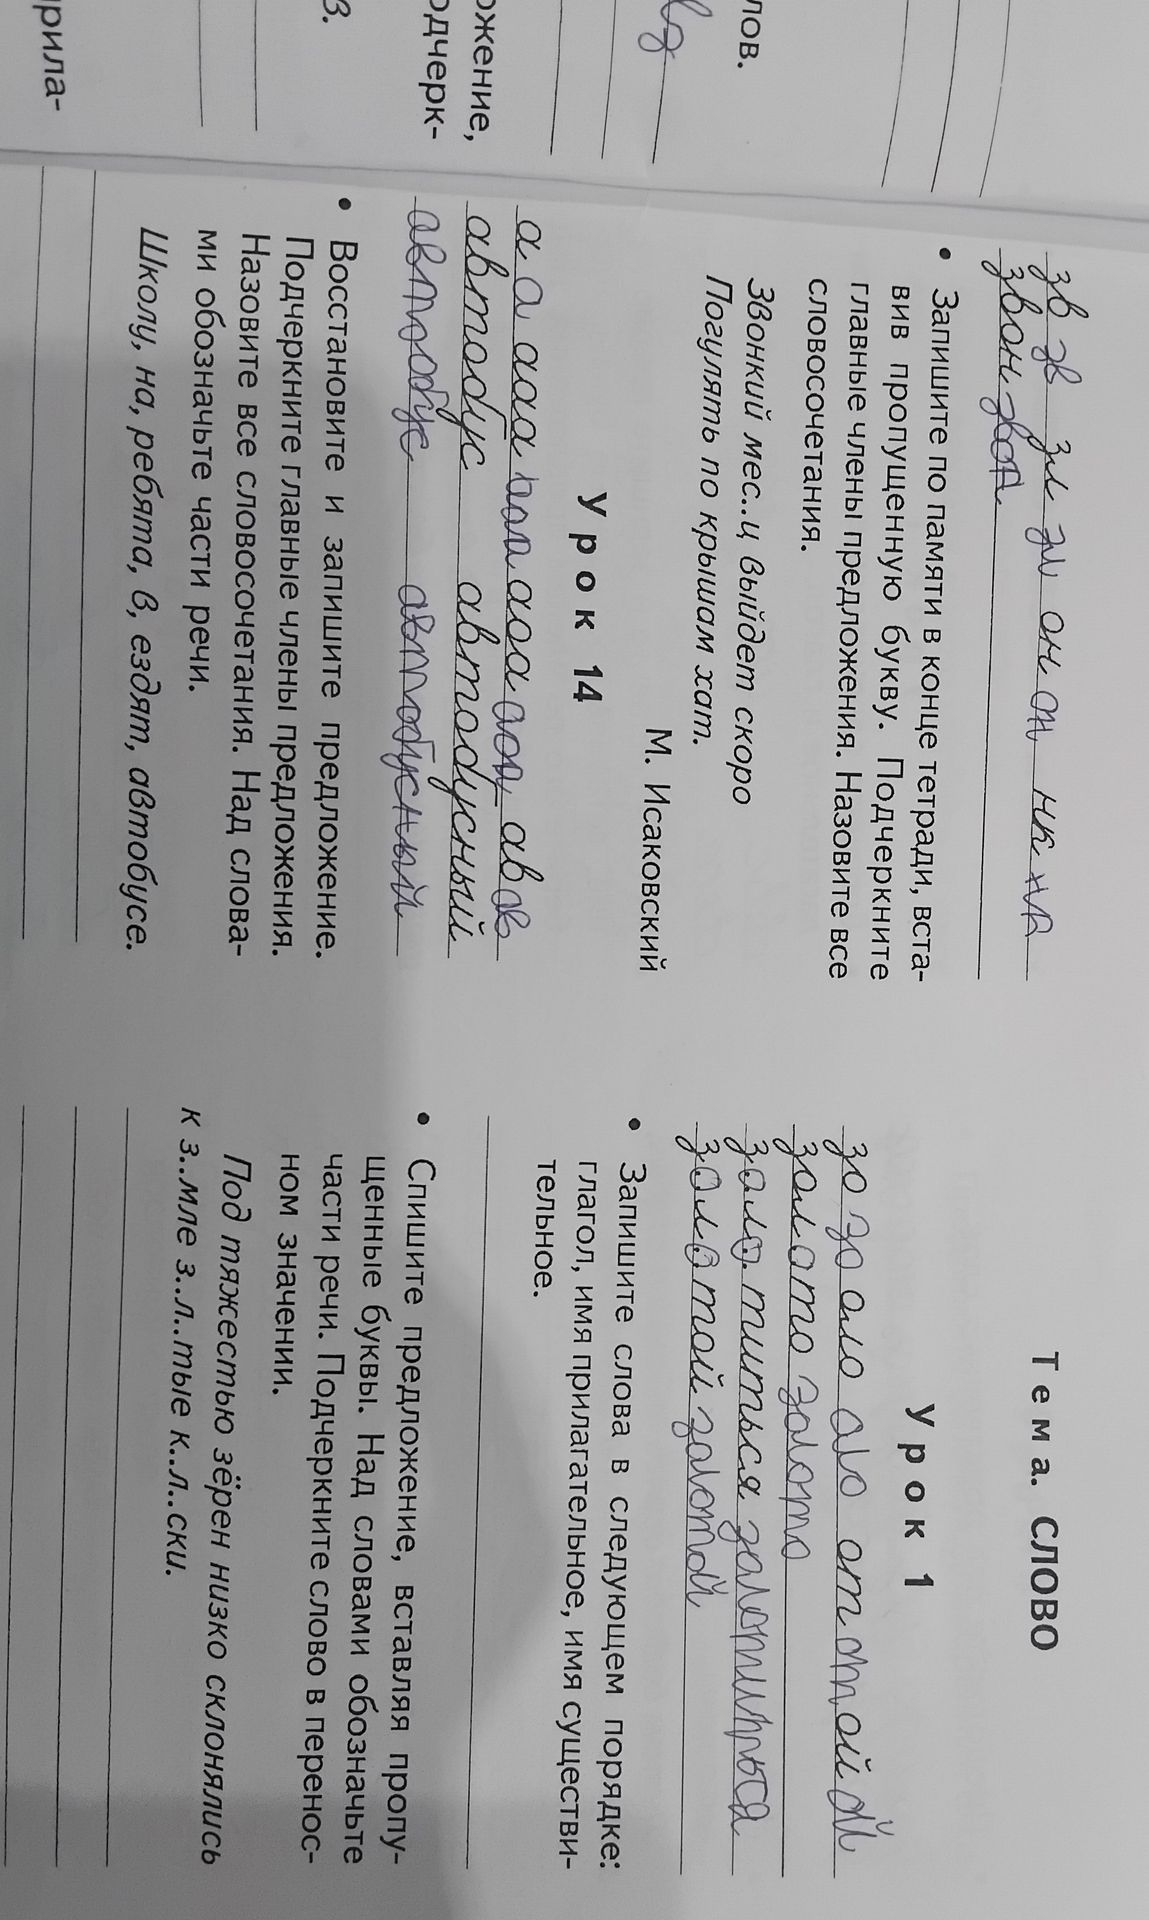 прила-
в.
ожение,
одчерк-
лов.
зв зв зл зл он он нк нк
звон звон
• Запишите по памяти в конце тетради, вста-
вив пропущенную букву. Подчеркните
главные члены предложения. Назовите все
словосочетания.
Звонкий мес..ц выйдет скоро
Погулять по крышам хат.
М. Исаковский
Урок 14
а а ааа ааа ааа ав ав
автобус автобусный
автобус автобусный
• Восстановите и запишите предложение.
Подчеркните главные члены предложения.
Назовите все словосочетания. Над слова-
ми обозначьте части речи.
Школу, на, ребята, в, ездят, автобусе.
Тема. СЛОВО
Урок 1
зо зо оло оло от от ой ой
золото золото
золотиться золотиться
золотой золотой
• Запишите слова в следующем порядке:
глагол, имя прилагательное, имя существи-
тельное.
• Спишите предложение, вставляя пропу-
щенные буквы. Над словами обозначьте
части речи. Подчеркните слово в перенос-
ном значении.
Под тяжестью зёрен низко склонялись
к з..мле з..л..тые к..л..ски.